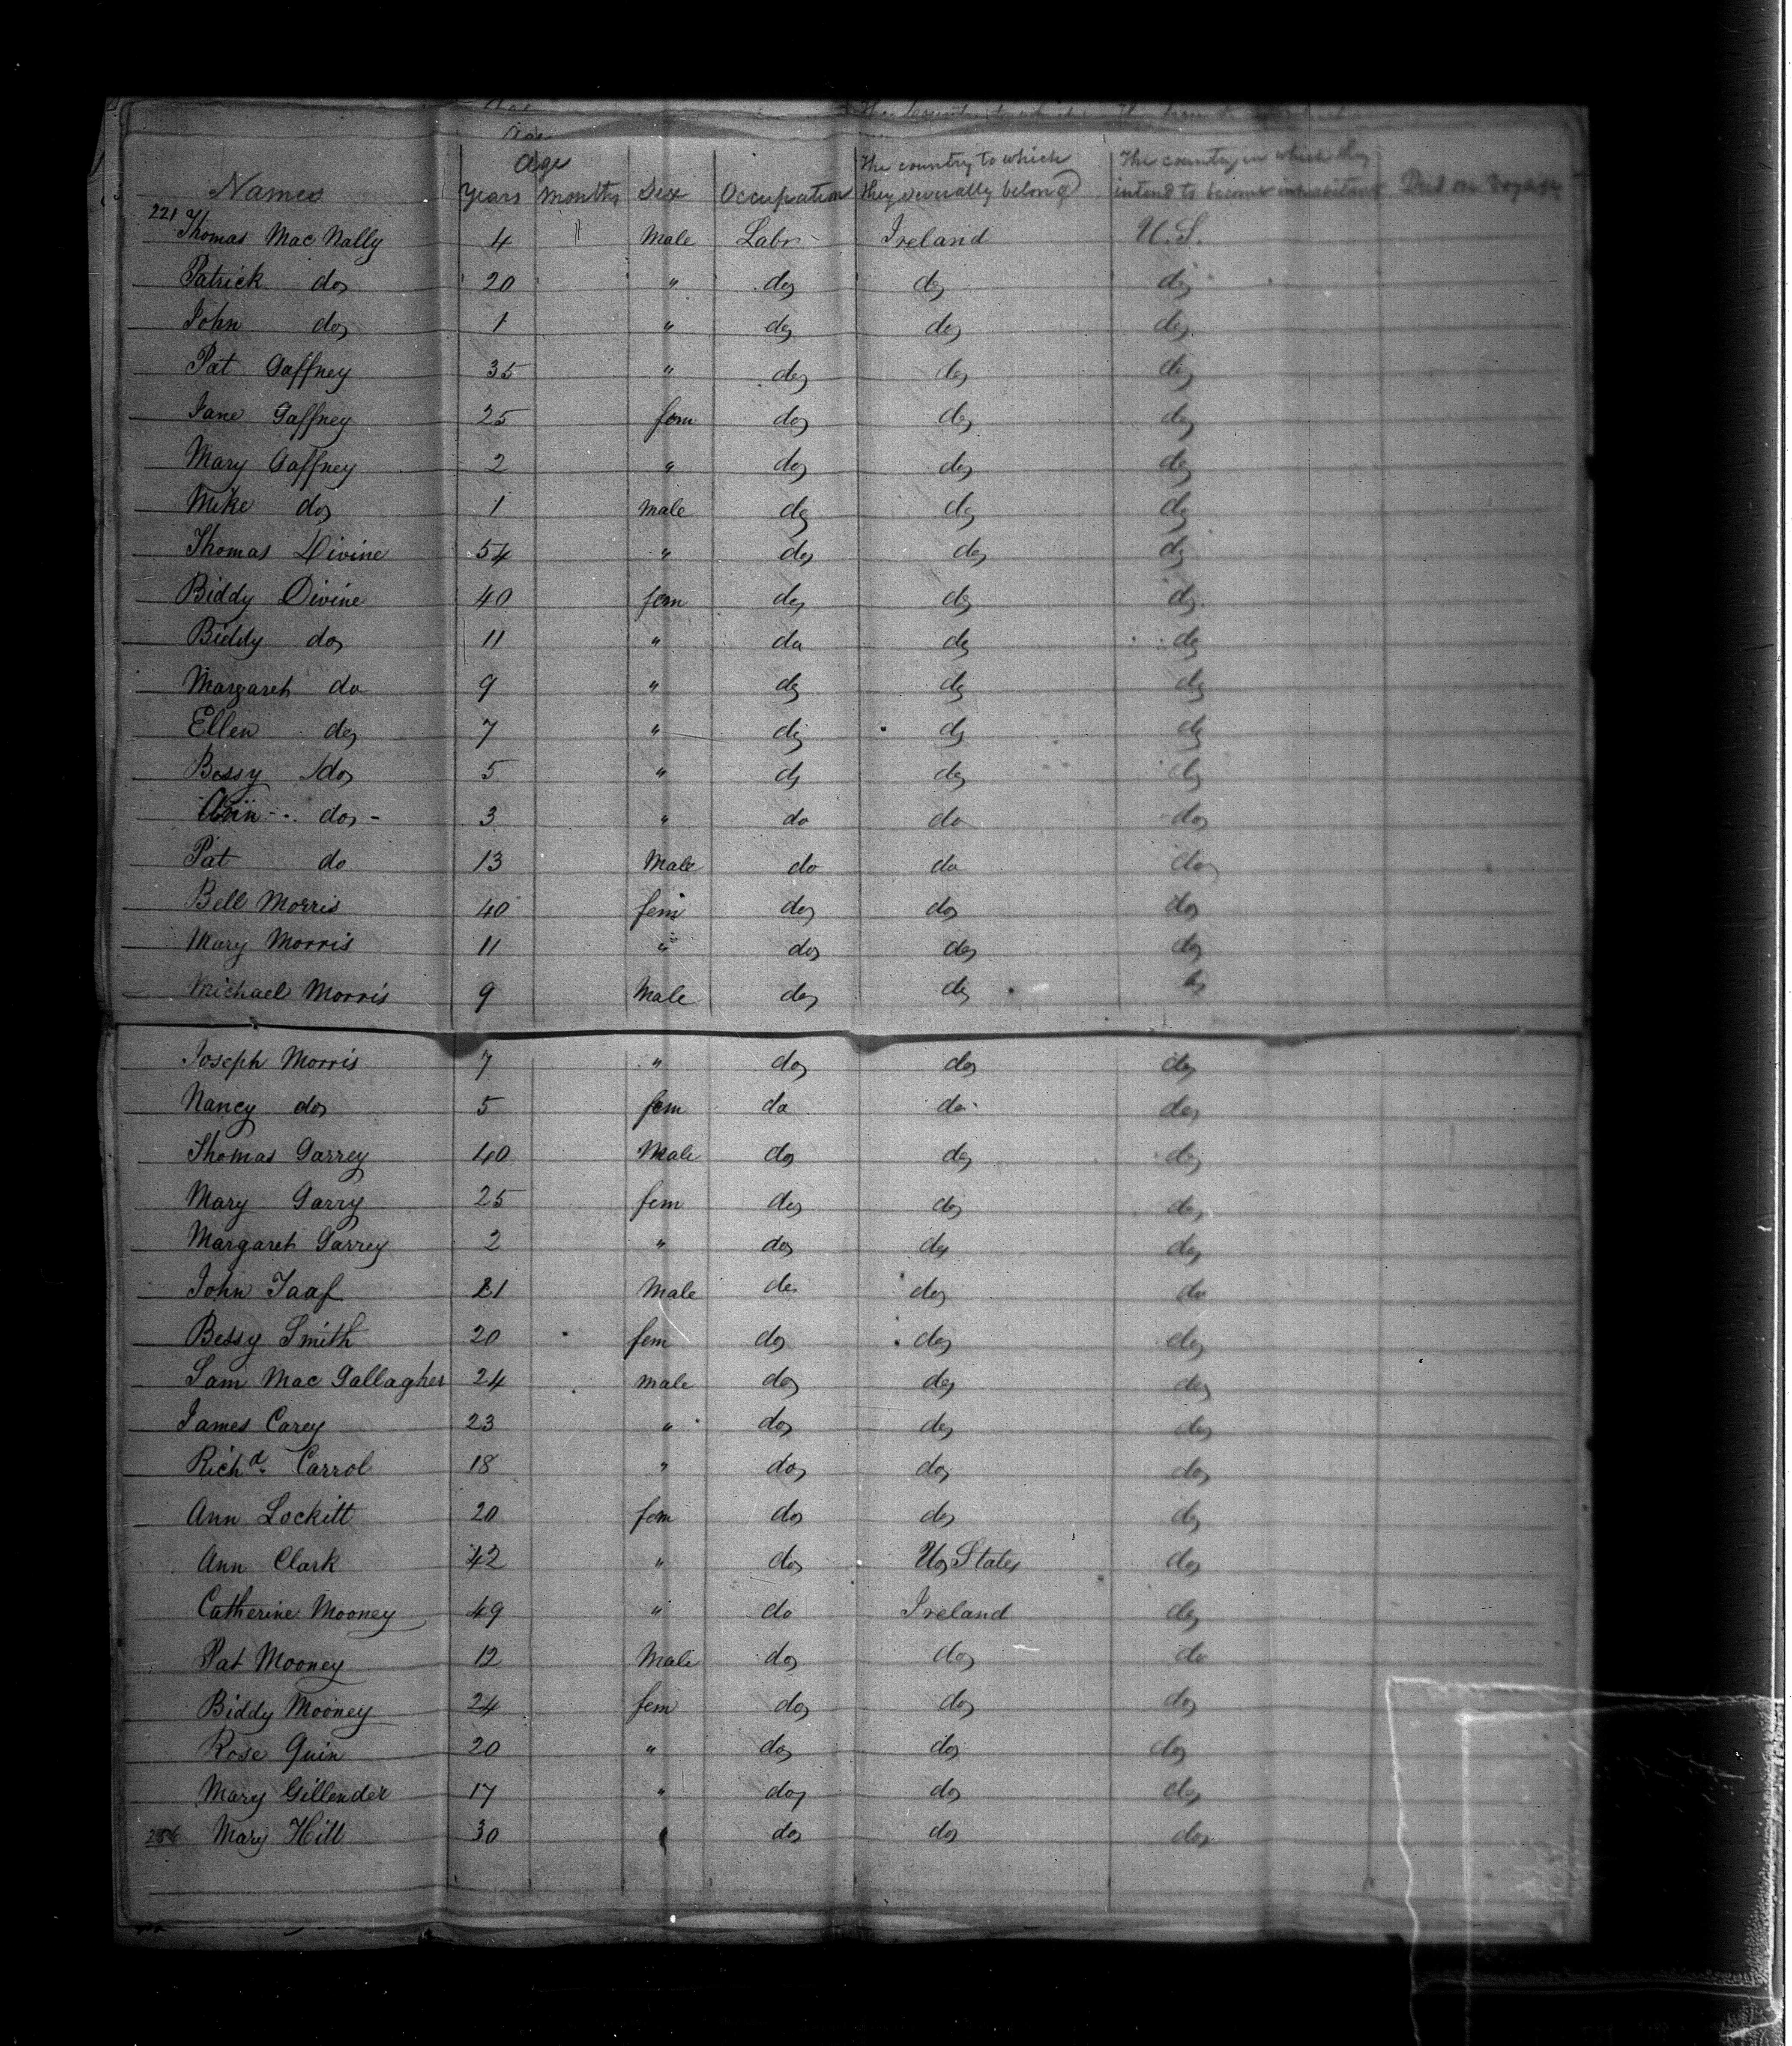 Age
Names years months Sex Occupation The country to which they severally belong The country in which they intend to become inhabitants Died on Voyage
221 Thomas Mac Nally 4 " Male Labr - Ireland U.S.
Patrick do 20 " do do do
John do 1 " do do do
Pat Gaffney 35 " do do do
Jane Gaffney 25 fem do do do
Mary Gaffney 2 " do do do
Mike do 1 Male do do do
Thomas Divine 54 " do do do
Biddy Divine 40 fem do do do
Biddy do 11 " do do do
Margaret do 9 " do do do
Ellen do 7 " do do do
Bessy do 5 " do do do
Ann do - 3 " do do do
Pat do 13 Male do do do
Bell Morris 40 fem do do do
Mary Morris 11 " do do do
Michael Morris 9 Male do do do
Joseph Morris 7 " do do do
Nancy do 5 fem do do do
Thomas Garrey 40 Male do do do
Mary Garry 25 fem do do do
Margaret Garrey 2 " do do do
John Taaf 21 Male do do do
Bessy Smith 20 fem do do do
Sam Mac Gallagher 24 male do do do
James Carey 23 " do do do
Richd. Carrol 18 " do do do
Ann Lockitt 20 fem do do do
Ann Clark 42 " do Uo States do
Catherine Mooney 49 " do Ireland do
Pat Mooney 12 Male do do do
Biddy Mooney 24 fem do do do
Rose Quin 20 " do do do
Mary Gillender 17 " do do do
Mary Hill 30 " do do do